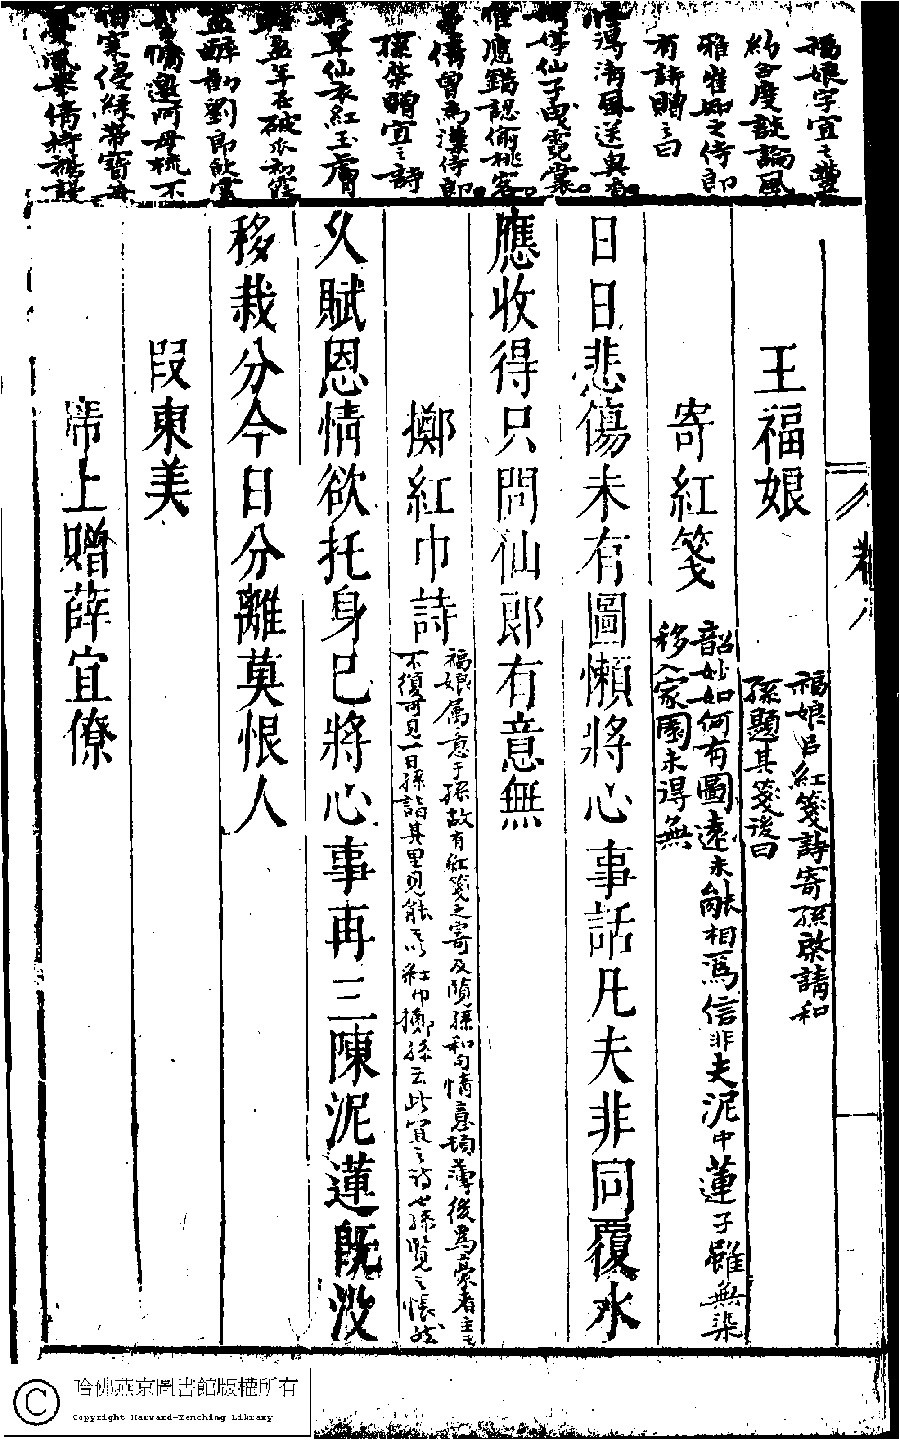 福娘字宜之豐
約合度談論風
雅崔知之侍郎
有詩贈之曰
怪得清風送異香
娉婷仙子曳霓裳
惟應錯認偷桃客
曼倩曾為漢侍郎
孫棨贈宜之詩
翠仙衣紅玉膚
盈年在破瓜初霞
盃醉勸劉郎飲雲
慵邀阿母梳不
怕寒侵緣帶寶每
憂風舉倩持裾謾
王福娘
福娘以紅箋詩寄孫棨請和
孫題其箋後曰
寄紅箋
韶妙如何有圖遠未能相為信非夫泥中蓮子雖無染
移入家園未得無
日日悲傷未有圖懶將心事話凡夫非同覆水
應收得只問仙郎有意無
擲紅巾詩
福娘属意于孫故有紅箋之寄及覽孫和句情意頗薄後為豪者主之
不復可見一日孫詣其里見能以紅巾擲孫云此宜之詩也孫覽之悵然
久賦恩情欲托身已將心事再三陳泥蓮既没
移栽分今日分離莫恨人
段東美
席上贈薛宜僚
哈佛燕京圖書館版權所有
Copyright Harvard-Yenching Library